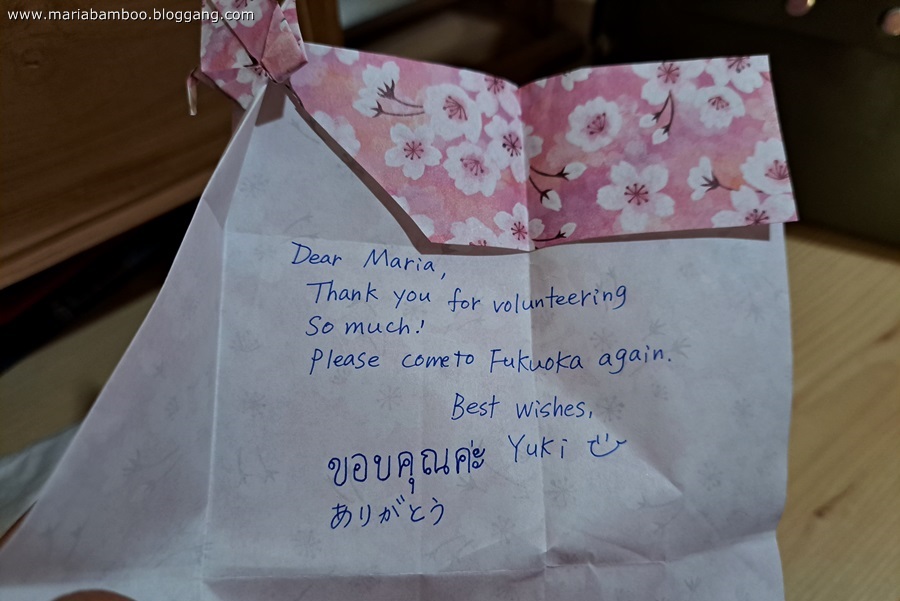 www.mariabamboo.bloggang.com
Dear Maria,
Thank you for volunteering
So much!
Please come to Fukuoka again.
Best wishes,
Yuki
ขอบคุณค่ะ
ありがとう